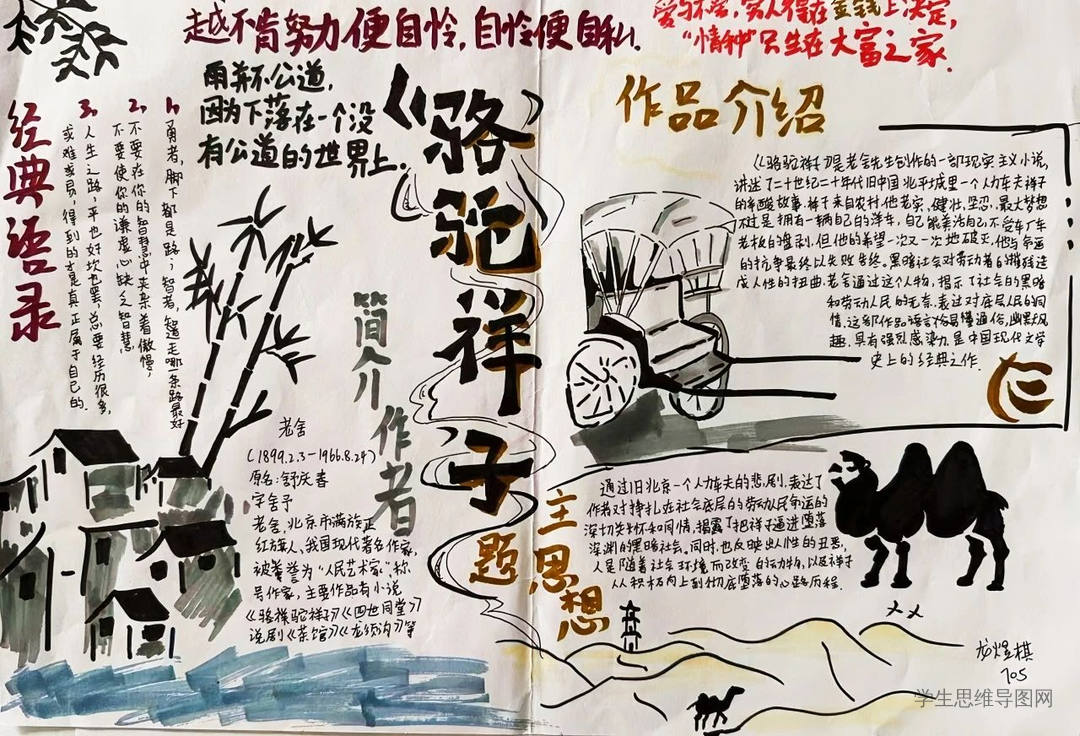 越不肯努力便自怜,自怜便自私.
爱与不爱,穷人得在金钱上决定,
"情种"只生在大富之家.
雨并不公道,
因为下落在一个没
有公道的世界上.
《骆驼祥子》
经典语录
1、勇者,脚下都是路;智者,知道走哪一条路最好
2、不要在你的智慧中夹杂着傲慢,
不要使你的谦虚心缺乏智慧.
3、人生之路,平也好坎也罢,总要经历很多,
或难或易,得到的才是真正属于自己的.
简介作者
老舍
(1899.2.3—1966.8.24)
原名:舒庆春
字舍予
老舍,北京市满族正
红旗人,我国现代著名作家,
被誉为"人民艺术家"称
号作家,主要作品有小说
《骆祥驼祥子》《四世同堂》
说剧《茶馆》《龙须沟》等
作品介绍
《骆驼祥子》是老舍先生创作的一部现实主义小说,
讲述了二十世纪二十年代旧中国北平城里一个人力车夫祥子
的辛酸故事.祥子来自农村,他老实、健壮、坚忍.最大梦想
不过是拥有一辆自己的洋车,自己能养活自己,不受车厂车
老板的盘剥.但他的希望一次又一次地破灭,他与命运
的抗争最终以失败告终.黑暗社会对劳动者的摧残造
成人性的扭曲.老舍通过这个人物,揭示了社会的黑暗
和劳动人民的无奈.表达对底层人民的同
情.这部作品语言俗易懂通俗,幽默风
趣.具有强烈感染力.是中国现代文学
史上的经典之作.
主题思想
通过旧北京一个人力车夫的悲剧.表达了
作者对挣扎在社会底层的劳动人民命运的
深切关怀和同情,揭露了把祥子逼进堕落
深渊的黑暗社会,同时,也反映出人性的丑恶,
人是随着社会环境而改变的动物,以及祥子
从积极向上到彻底堕落的心路历程.
龙煜棋
705
学生思维导图网